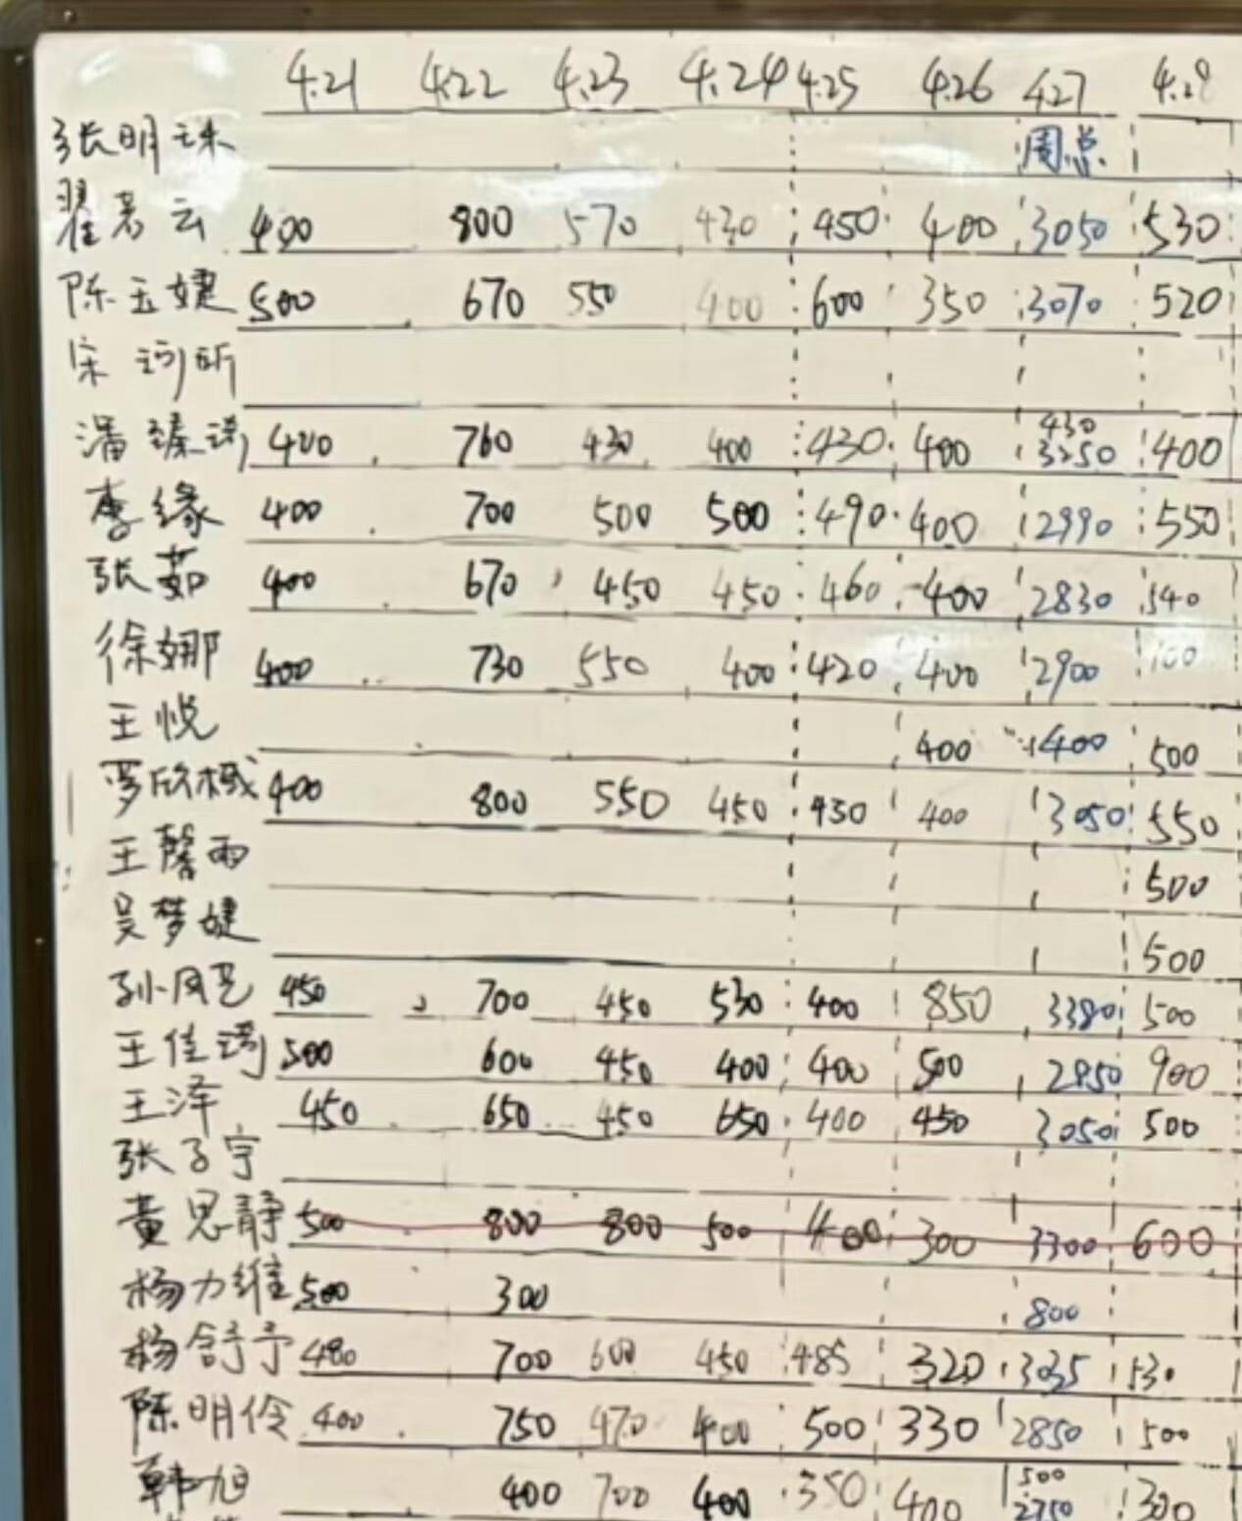 4.21 4.22 4.23 4.24 4.25 4.26 4.27 4.28
张明珠 周总
翟若云 400 800 570 430 450 400 3050 530
陈玉婕 500 670 550 400 600 350 3070 520
宋珂昕
430
潘臻琦 400 760 430 400 430 400 3250 400
李缘 400 700 500 500 490 400 2990 550
张茹 400 670 450 450 460 400 2830 540
徐娜 400 730 550 400 420 400 2900
王悦 400 400 500
罗欣棫 400 800 550 450 450 400 3050 550
王馨雨 500
吴梦婕 500
孙凤艺 450 700 450 530 400 850 3380 500
王佳琦 500 600 450 400 400 500 2850 900
王泽 450 650 450 650 400 450 3050 500
张子宇
黄思静 500 800 800 500 400 300 3300 600
杨力维 500 300 800
杨舒予 480 700 600 450 485 320 3035 530
陈明伶 400 750 470 400 500 330 2850 500
500
韩旭 400 700 400 350 400 2750 300